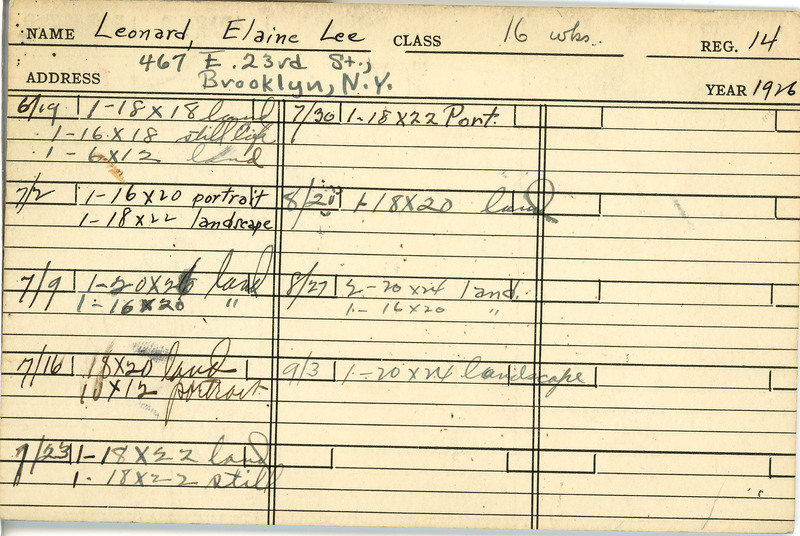 NAME Leonard, Elaine Lee CLASS 16 wks. REG. 14
ADDRESS 467 E. 23rd St.,
Brooklyn, N.Y. YEAR 1926
6/19 1-18x18 land
1-16x18 still life
1-6x12 land
7/2 1-16x20 portrait
1-18x22 landscape
7/9 1-20x26 land
1-16x20 "
7/16 18x20 land
10x12 portrait
7/23 1-18x22 land
1-18x22 still
7/30 1-18x22 Port.
8/20 1-18x20 land
8/27 2-20x24 land.
1-16x20 "
9/3 1-20x24 landscape